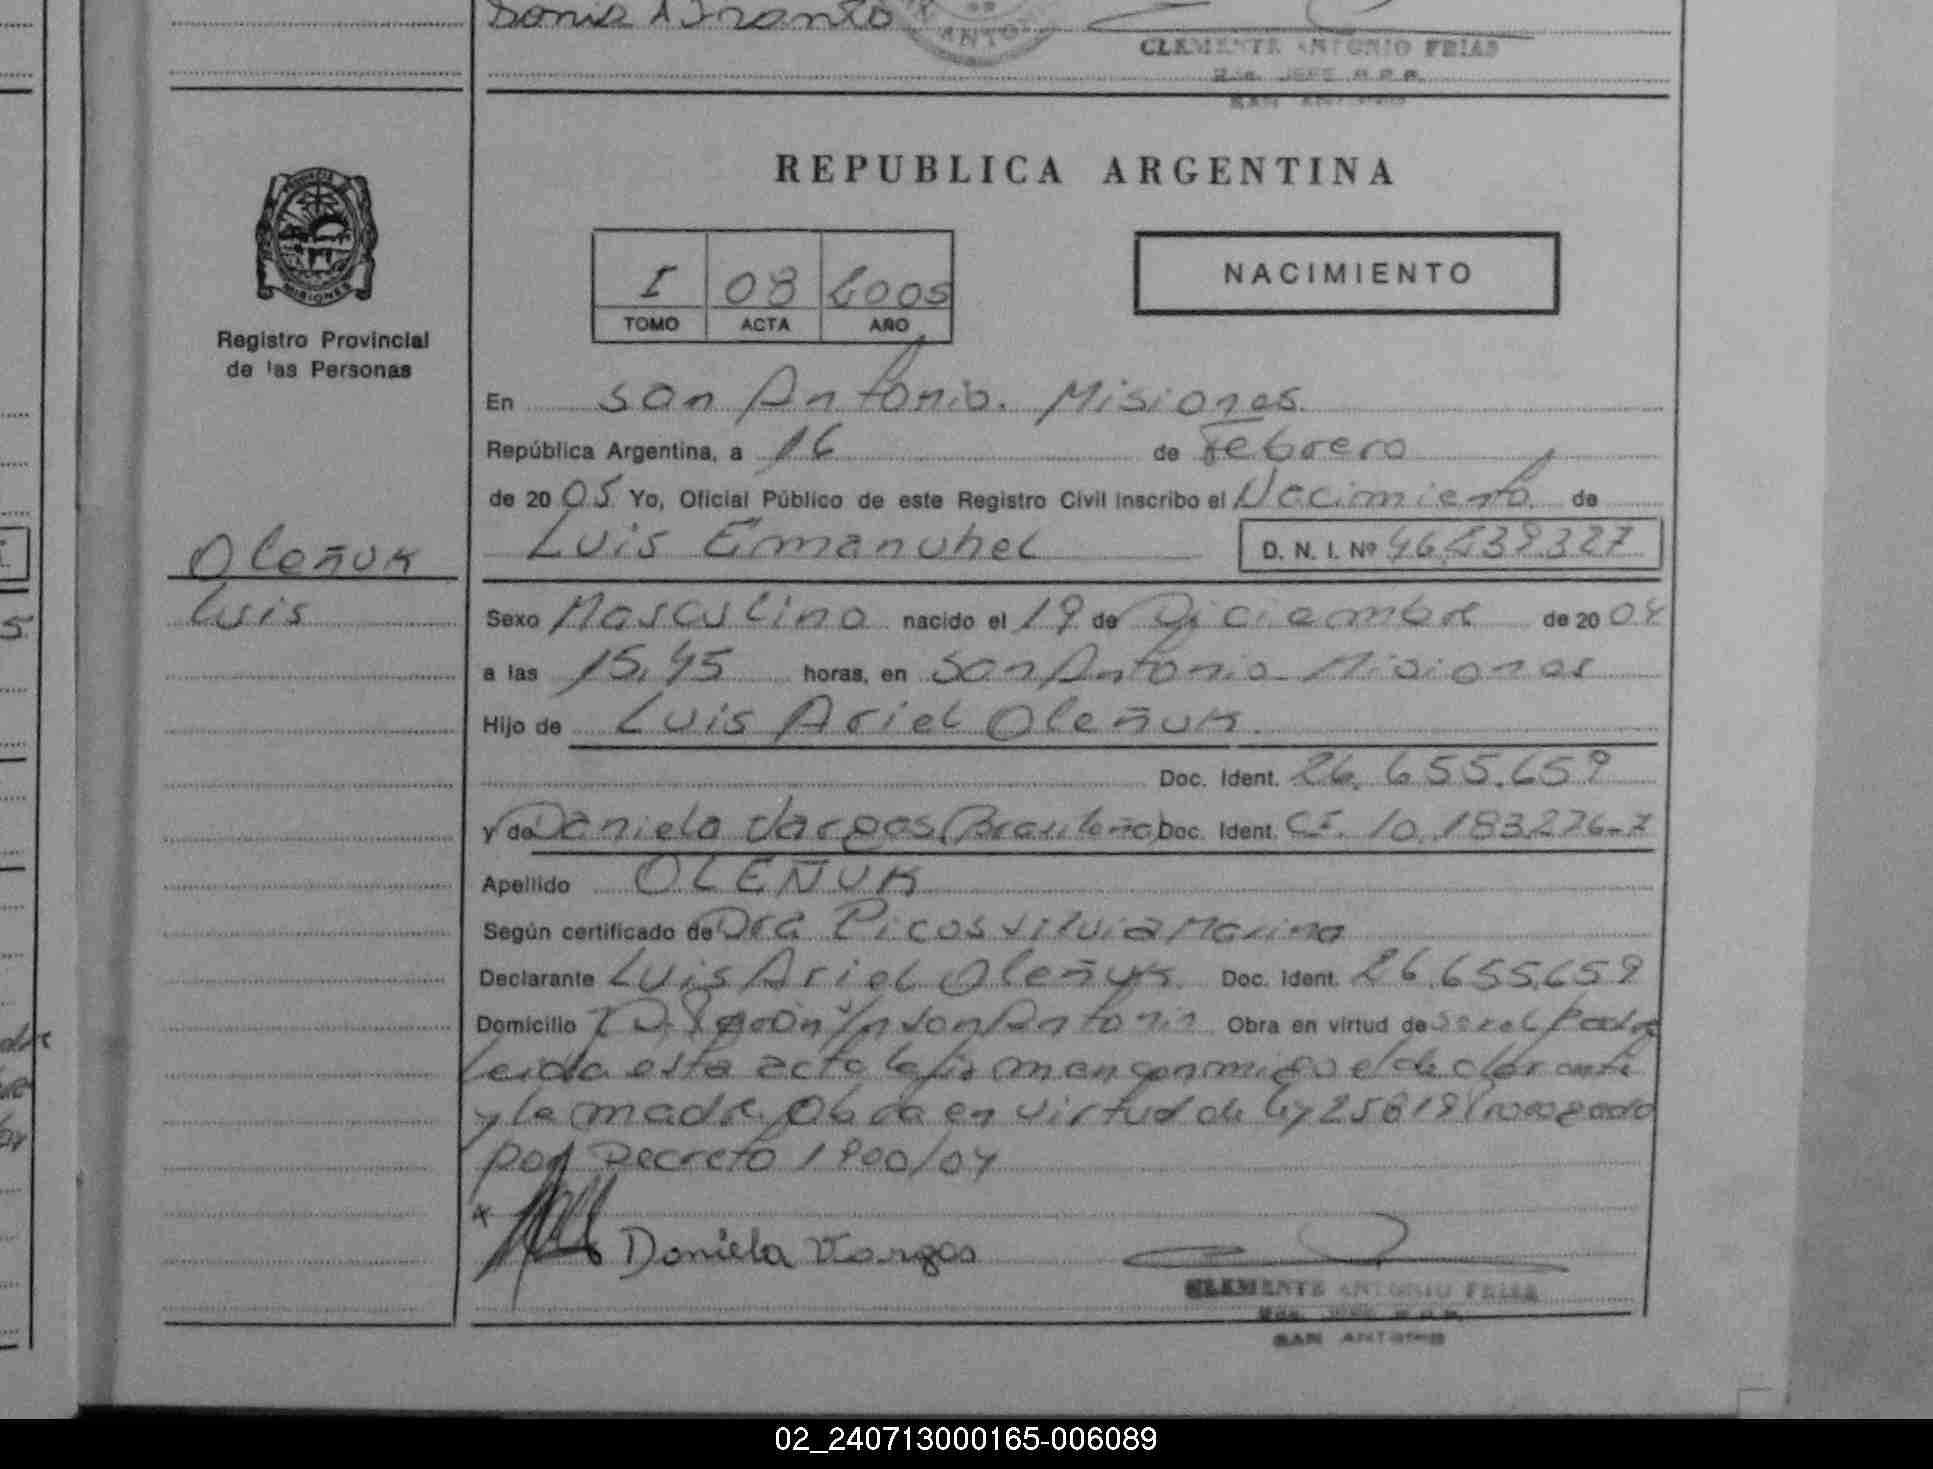 Sonia
ANTO
CLEMENTE ANTONIO FRIAS
JEFE R.P.P.
SAN ANTONIO
REPUBLICA ARGENTINA
PROVINCIA DE
MISIONES
Registro Provincial
de las Personas
I 08 2005
TOMO ACTA AÑO
NACIMIENTO
En San Antonio. Misiones.
República Argentina, a 16 de Febrero
de 2005 Yo, Oficial Público de este Registro Civil inscribo el Nacimiento de
Luis Emanuhel D. N. I. Nº
Oleñuk
Luis
Sexo Masculino nacido el 19 de Diciembre de 2004
a las 15,45 horas, en San Antonio - Misiones
Hijo de Luis Ariel Oleñuk.
Doc. Ident. 26.655.659
y de Daniela Vargas (Brasileña) Doc. Ident. CI. 10.183276-7
Apellido OLEÑUK
Según certificado de Dra Picos Silvia Marina
Declarante Luis Ariel Oleñuk. Doc. Ident. 26.655.659
Domicilio San Antonio Obra en virtud de ser el Padre
Leida esta acta la firman conmigo el declarante
y la madre. Obra en virtud de ley 25819
por Decreto 1900/04
x
Daniela Vargas
CLEMENTE ANTONIO FRIAS
JEFE R.P.P.
SAN ANTONIO
02_240713000165-006089